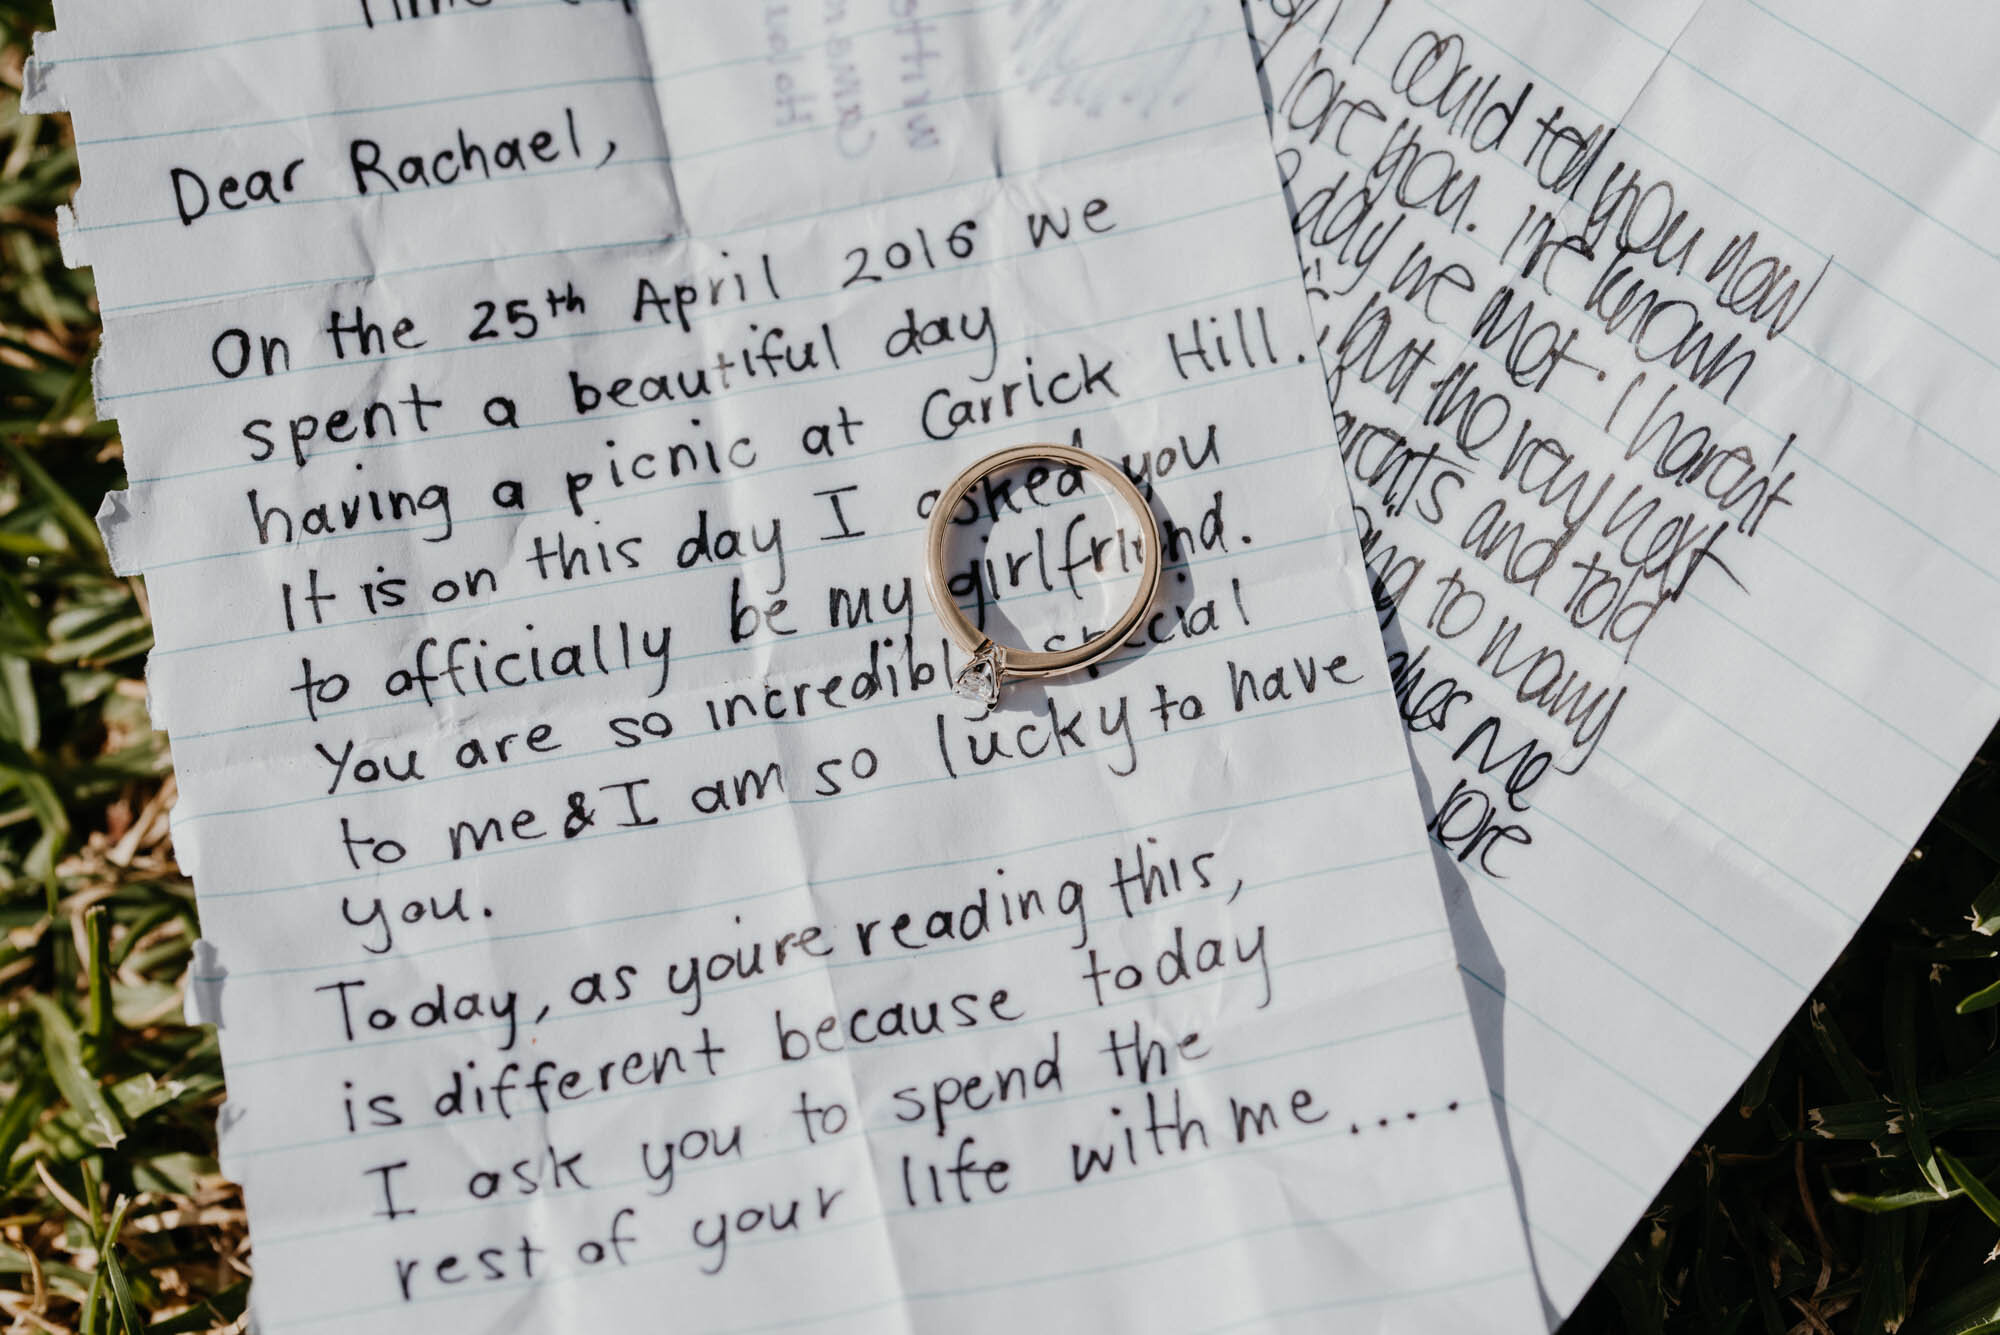 Dear Rachael,
On the 25th April 2016 we
spent a beautiful day
having a picnic at Carrick Hill.
It is on this day I asked you
to officially be my girlfriend.
You are so incredibly special
to me & I am so lucky to have
you.
Today, as you're reading this,
is different because today
I ask you to spend the
rest of your life with me....
I could tell you now
love you. I've known
day we met. I haven't
but the very next
and told
to many
me